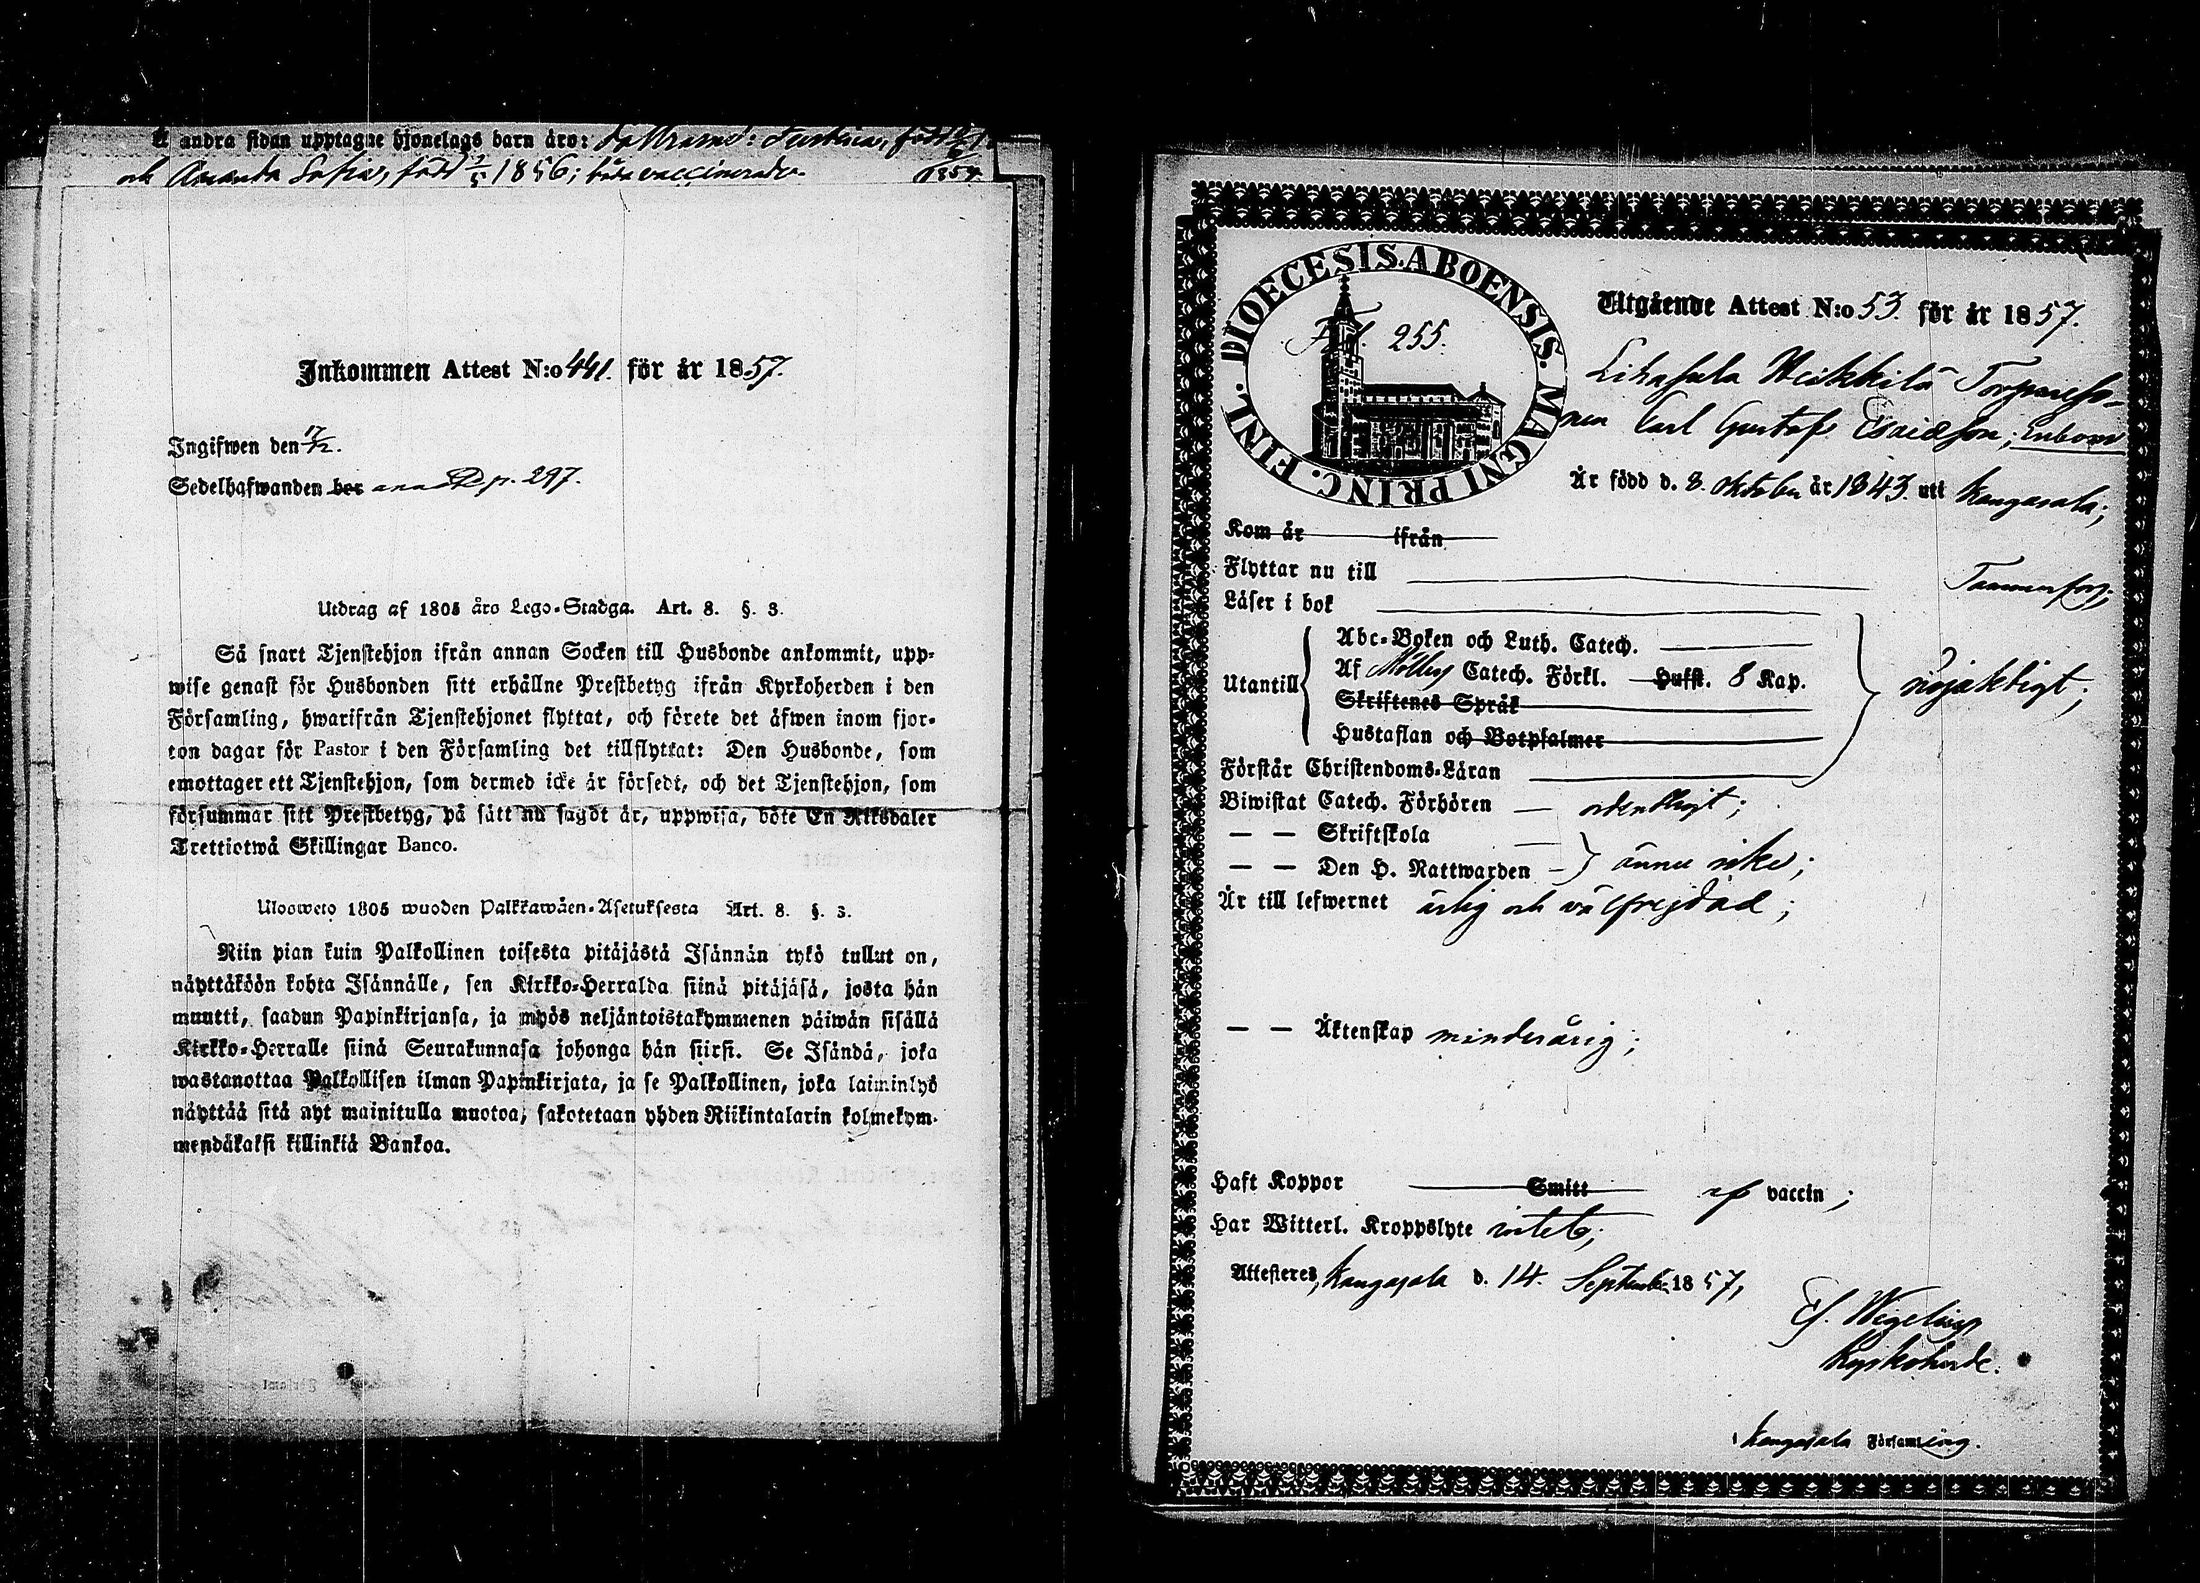 andra sidan upptagne hjonelags barn äro: Justina, född
och Amanda Sofia, född 1/5 1856; båda vaccinerade. 1854.
Inkommen Attest N:o 441. för år 1857.
Ingifwen den 17/12.
Sedelhafwanden bor p. 297.
Utdrag af 1805 års Lego-Stadga. Art. 8. §. 3.
Så snart Tjenstehjon ifrån annan Socken till Husbonde ankommit, upp-
wise genast för Husbonden sitt erhållne Prestbetyg ifrån Kyrkoherden i den
Församling, hwarifrån Tjenstehjonet flyttat, och förete det äfwen inom fjor-
ton dagar för Pastor i den Församling det tillflyttat: Den Husbonde, som
emottager ett Tjenstehjon, som dermed icke är försedt, och det Tjenstehjon, som
försummar sitt Prestbetyg, på sätt nu sagdt är, uppwisa, böte En Riksdaler
Trettiotwå Skillingar Banco.
Ulosweto 1805 wuoden Palkkawäen-Asetuksesta Art. 8. §. 3.
Niin pian kuin Palkollinen toisesta pitäjästä Isännän tykö tullut on,
näyttäköön kohta Isännälle, sen Kirkko-Herralda siinä pitäjäsä, josta hän
muutti, saadun Papinkirjansa, ja myös neljäntoistakymmenen päiwän sisällä
Kirkko-Herralle siinä Seurakunnasa johonga hän siirsi. Se Isändä, joka
wastanottaa Palkollisen ilman Papinkirjata, ja se Palkollinen, joka laiminlyö
näyttää sitä nyt mainitulla muotoa, sakotetaan yhden Riikintalarin kolmekym-
mendäkaksi killinkiä Bankoa.
DIOECESIS ABOENSIS. MAGNI PRINC. FINL.
Fol. 255.
Utgående Attest N:o 53. för år 1857.
Lihasula Heikkilä Torpareso-
nen Carl Gustaf Esaiasson, Enbom
Är född d. 8. Oktober år 1843. uti Kangasala;
Kom år ifrån
Flyttar nu till Tammerfors;
Läser i bok
Utantill
Abc-Boken och Luth. Catech.
Af Möllers Catech. Förkl. Hufst. 8 Kap.
Skriftenes Språk
Hustaflan och Botpsalmer
nöjaktigt;
Förstår Christendoms-Läran
Biwistat Catech. Förhören — ordentligt;
— — Skriftskola
— — Den H. Nattwarden — ännu icke;
Är till lefwernet ärlig och välfrejdad;
— — Äktenskap minderårig;
Haft Koppor Smitt af vaccin;
Har Witterl. Kroppslyte intet;
Attesteres, Kangasala d. 14. September 1857,
Ef. Wegelius
Kyrkoherde.
Kangasala Församling.